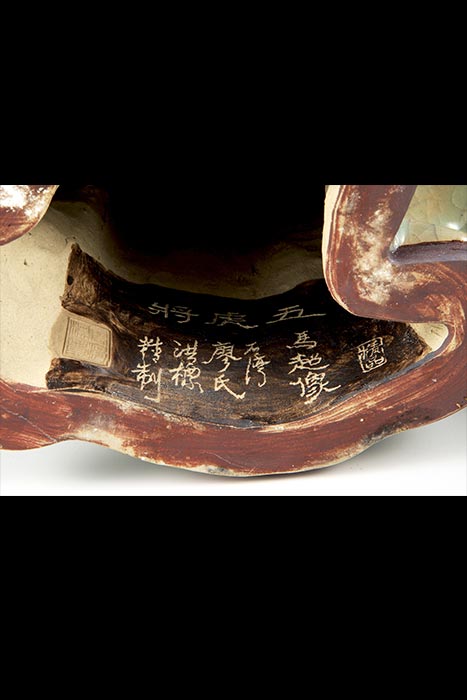 五虎將
馬超像
石湾
廖氏
洪標
精制